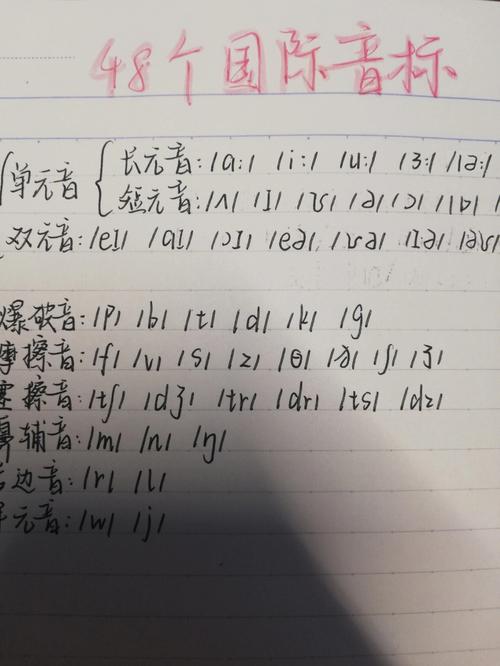 48个国际音标
单元音 长元音: /ɑ:/ /i:/ /u:/ /ɜ:/ /ə:/
短元音: /ʌ/ /ɪ/ /ʊ/ /ə/ /ɔ/ /ɒ/
双元音: /eɪ/ /aɪ/ /ɔɪ/ /eə/ /ʊə/ /ɪə/ /əʊ/
爆破音: /p/ /b/ /t/ /d/ /k/ /g/
摩擦音: /f/ /v/ /s/ /z/ /θ/ /ð/ /ʃ/ /ʒ/
塞擦音: /tʃ/ /dʒ/ /tr/ /dr/ /ts/ /dz/
鼻辅音: /m/ /n/ /ŋ/
边音: /r/ /l/
元音: /w/ /j/